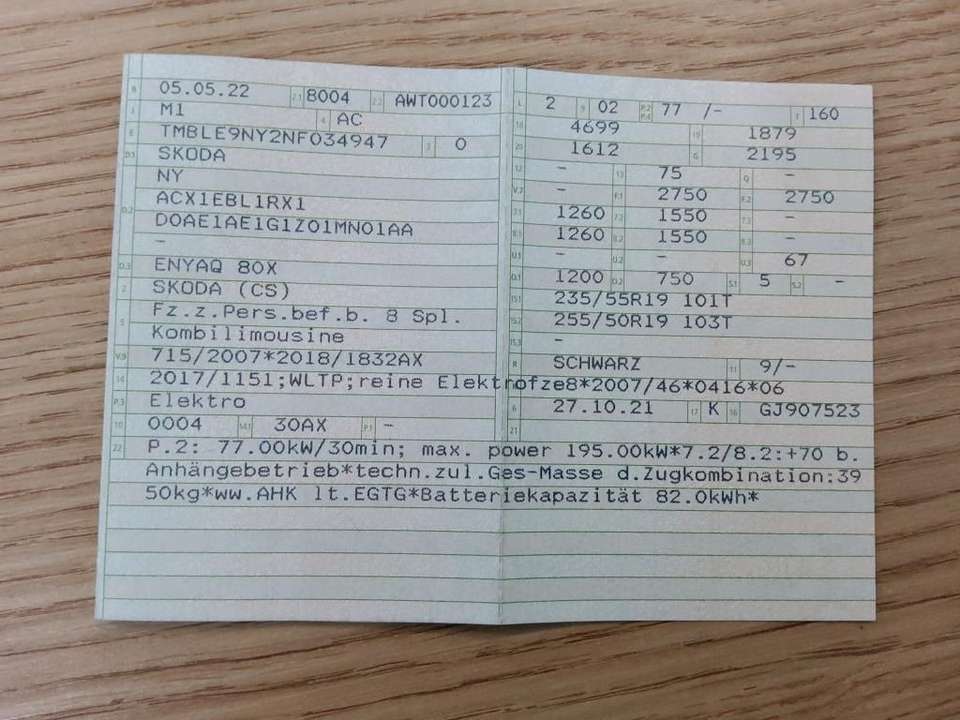 B 05.05.22 2.1 8004 2.2 AWT000123
J M1 4 AC
E TMBLE9NY2NF034947 3 0
D.1 SKODA
NY
D.2 ACX1EBL1RX1
D0AE1AE1G1Z01MN01AA
-
D.3 ENYAQ 80X
2 SKODA (CS)
5 Fz.z.Pers.bef.b. 8 Spl.
Kombilimousine
V.9 715/2007*2018/1832AX
14 2017/1151;WLTP;reine Elektrofze8*2007/46*0416*06
P.3 Elektro
10 0004 14.1 30AX P.1 -
L 2 9 02 P.2 P.4 77 /- T 160
18 4699 19 1879
20 1612 G 2195
12 - 13 75 Q -
V.7 - F.1 2750 F.2 2750
7.1 1260 7.2 1550 7.3 -
8.1 1260 8.2 1550 8.3 -
U.1 - U.2 - U.3 67
O.1 1200 O.2 750 S.1 5 S.2 -
15.1 235/55R19 101T
15.2 255/50R19 103T
15.3 -
R SCHWARZ 11 9/-
6 27.10.21 17 K 16 GJ907523
21
22 P.2: 77.00kW/30min; max. power 195.00kW*7.2/8.2:+70 b.
Anhängebetrieb*techn.zul.Ges-Masse d.Zugkombination:39
50kg*ww.AHK lt.EGTG*Batteriekapazität 82.0kWh*